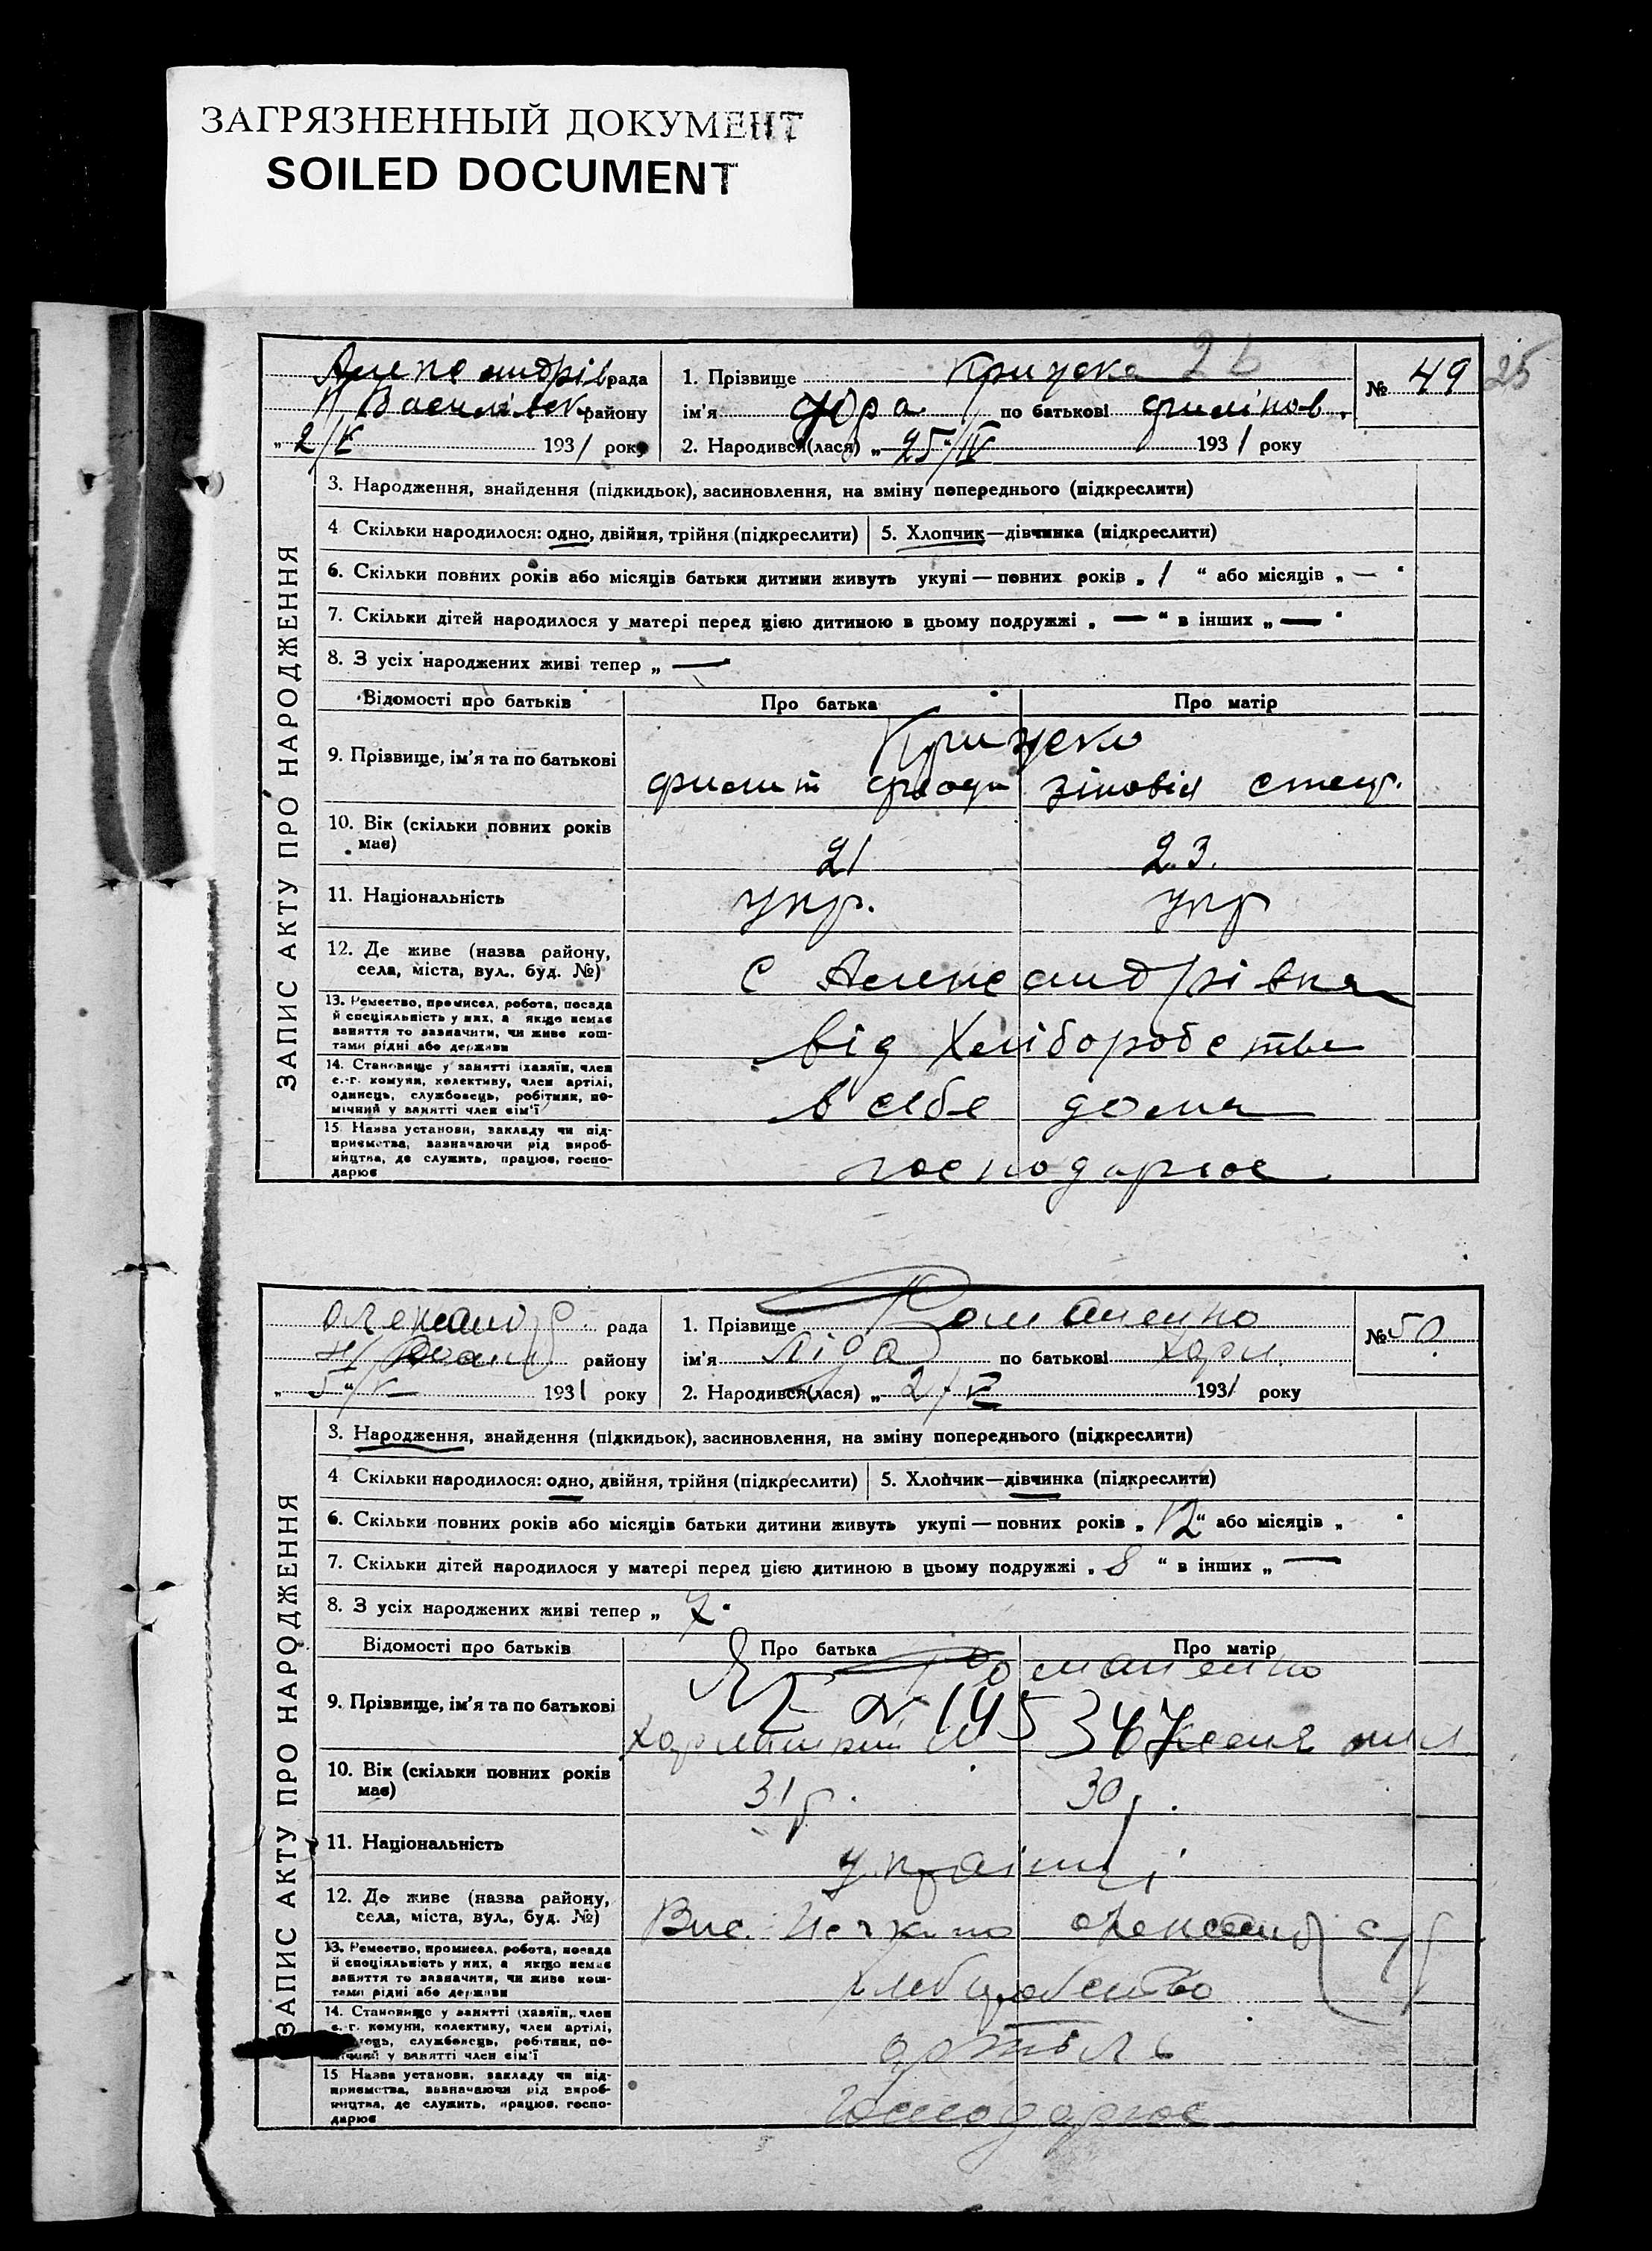 ЗАГРЯЗНЕННЫЙ ДОКУМЕНТ
SOILED DOCUMENT
25
рада
району
„ 2/V 1931 року
1. Прізвище
ім'я Юра по батькові
2. Народився(лася) „ 25"/IV 1931 року
№ 49
ЗАПИС АКТУ ПРО НАРОДЖЕННЯ
3. Народження, знайдення (підкидьок), засиновлення, на зміну попереднього (підкреслити)
4 Скільки народилося: одно, двійня, трійня (підкреслити)
5. Хлопчик—дівчинка (підкреслити)
6. Скільки повних років або місяців батьки дитини живуть укупі — повних років „ 1 “ або місяців „ —
7. Скільки дітей народилося у матері перед цією дитиною в цьому подружжі „ — “ в інших „ —
8. З усіх народжених живі тепер „ —
Відомості про батьків
Про батька
Про матір
9. Прізвище, ім'я та по батькові
зіновія
10. Вік (скільки повних років має)
21
23.
11. Національність
укр.
укр
12. Де живе (назва району, села, міста, вул., буд. №)
с Александрівка
13. Ремество, промисел, робота, посада й спеціяльність у них, а якщо немає заняття то зазначити, чи живе коштами рідні або держави
від Хліборобства
14. Становище у занятті (хазяїн, член с.-г. комуни, колективу, член артілі, одинець, службовець, робітник, помічний у занятті член сім'ї)
в себе дома
15 Назва установи, закладу чи підприємства, зазначаючи рід виробництва, де служить, працює, господарює
господарює
рада
району
„ 5"/V 1931 року
1. Прізвище Романенко
ім'я Ліда по батькові Харл.
2. Народився(лася) „ 2/V 1931 року
№ 50.
ЗАПИС АКТУ ПРО НАРОДЖЕННЯ
3. Народження, знайдення (підкидьок), засиновлення, на зміну попереднього (підкреслити)
4 Скільки народилося: одно, двійня, трійня (підкреслити)
5. Хлопчик—дівчинка (підкреслити)
6. Скільки повних років або місяців батьки дитини живуть укупі — повних років „ 12 “ або місяців „
7. Скільки дітей народилося у матері перед цією дитиною в цьому подружжі „ 8 “ в інших „ —
8. З усіх народжених живі тепер „ 7
Відомості про батьків
Про батька
Про матір
Романенко
9. Прізвище, ім'я та по батькові
10. Вік (скільки повних років має)
31 р.
30 р.
11. Національність
українці
12. Де живе (назва району, села, міста, вул., буд. №)
13. Ремество, промисел, робота, посада й спеціяльність у них, а якщо немає заняття то зазначити, чи живе коштами рідні або держави
14. Становище у занятті (хазяїн, член с.-г. комуни, колективу, член артілі, службовець, робітник, у занятті член сім'ї
артіль
15 Назва установи, закладу чи підприємства, зазначаючи рід виробництва, де служить, працює, господарює
господарює